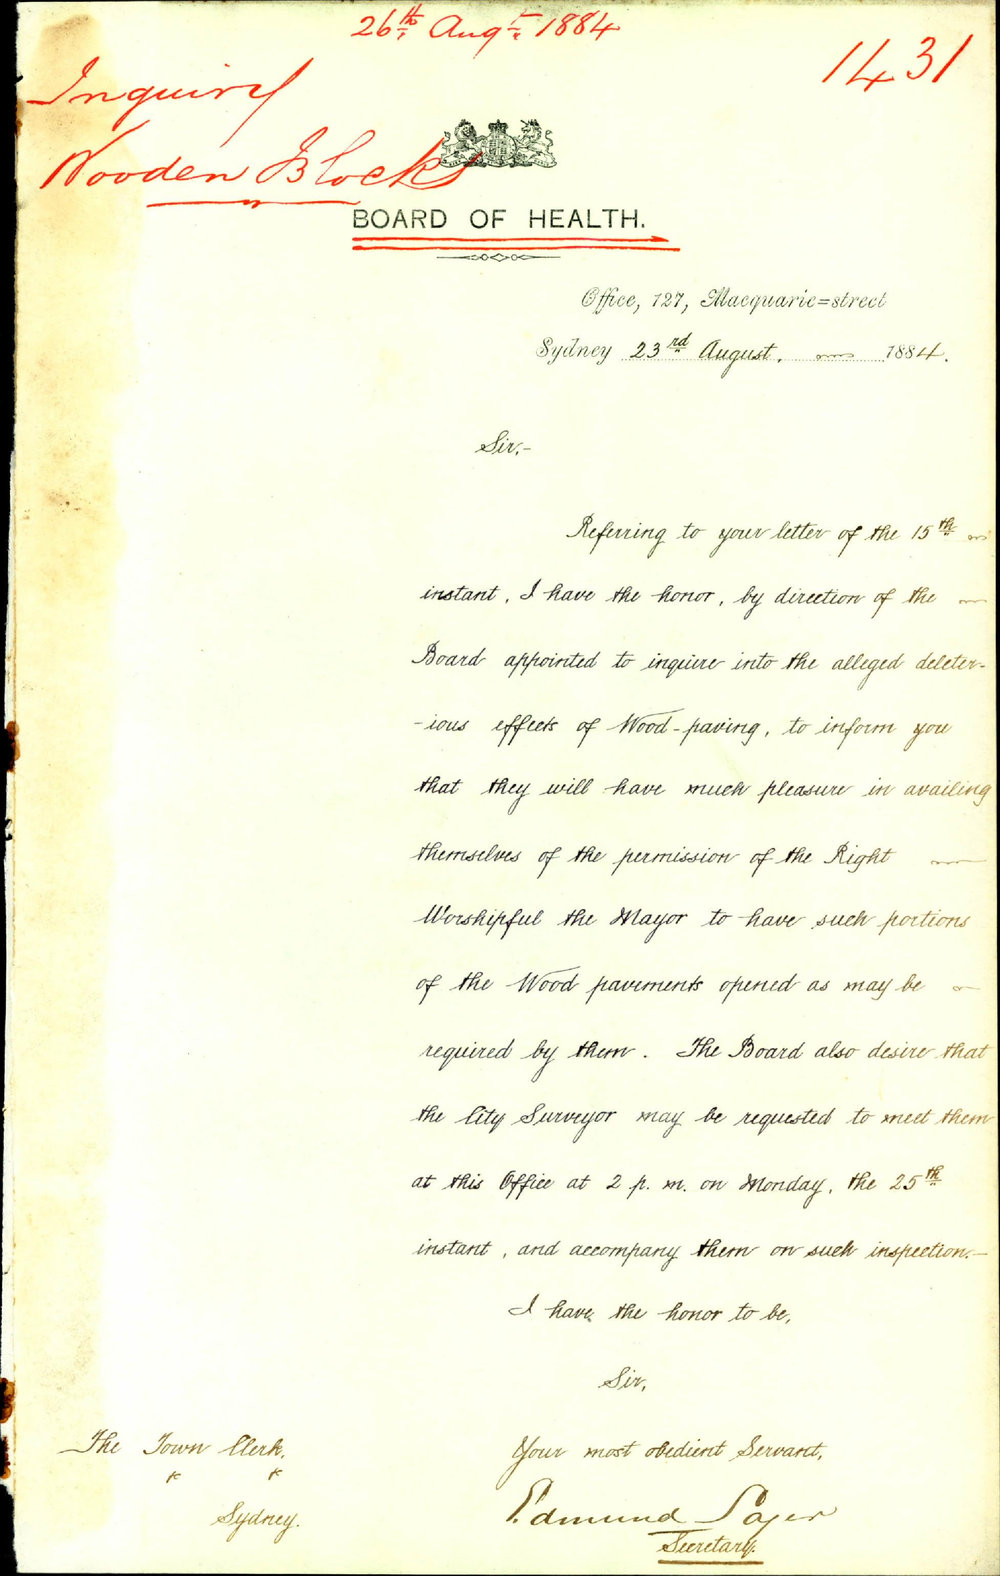 26th Augt 1884
1431
Inquiry
Wooden Blocks
BOARD OF HEALTH.
Office, 127, Macquarie=street
Sydney 23rd August, 1884.
Sir,-
Referring to your letter of the 15th
instant, I have the honor, by direction of the
Board appointed to inquire into the alleged deleter-
-ious effects of Wood-paving, to inform you
that they will have much pleasure in availing
themselves of the permission of the Right
Worshipful the Mayor to have such portions
of the Wood pavements opened as may be
required by them. The Board also desire that
the City Surveyor may be requested to meet them
at this Office at 2 p.m. on Monday, the 25th
instant, and accompany them on such inspection.-
I have the honor to be,
Sir,
Your most obedient Servant,
Edmund Sager
Secretary.
The Town Clerk,
Sydney.